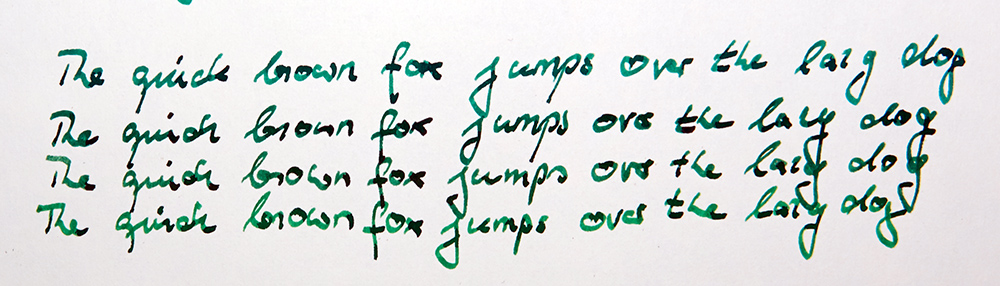 The quick brown fox jumps over the lazy dog
The quick brown fox jumps over the lazy dog
The quick brown fox jumps over the lazy dog
The quick brown fox jumps over the lazy dog